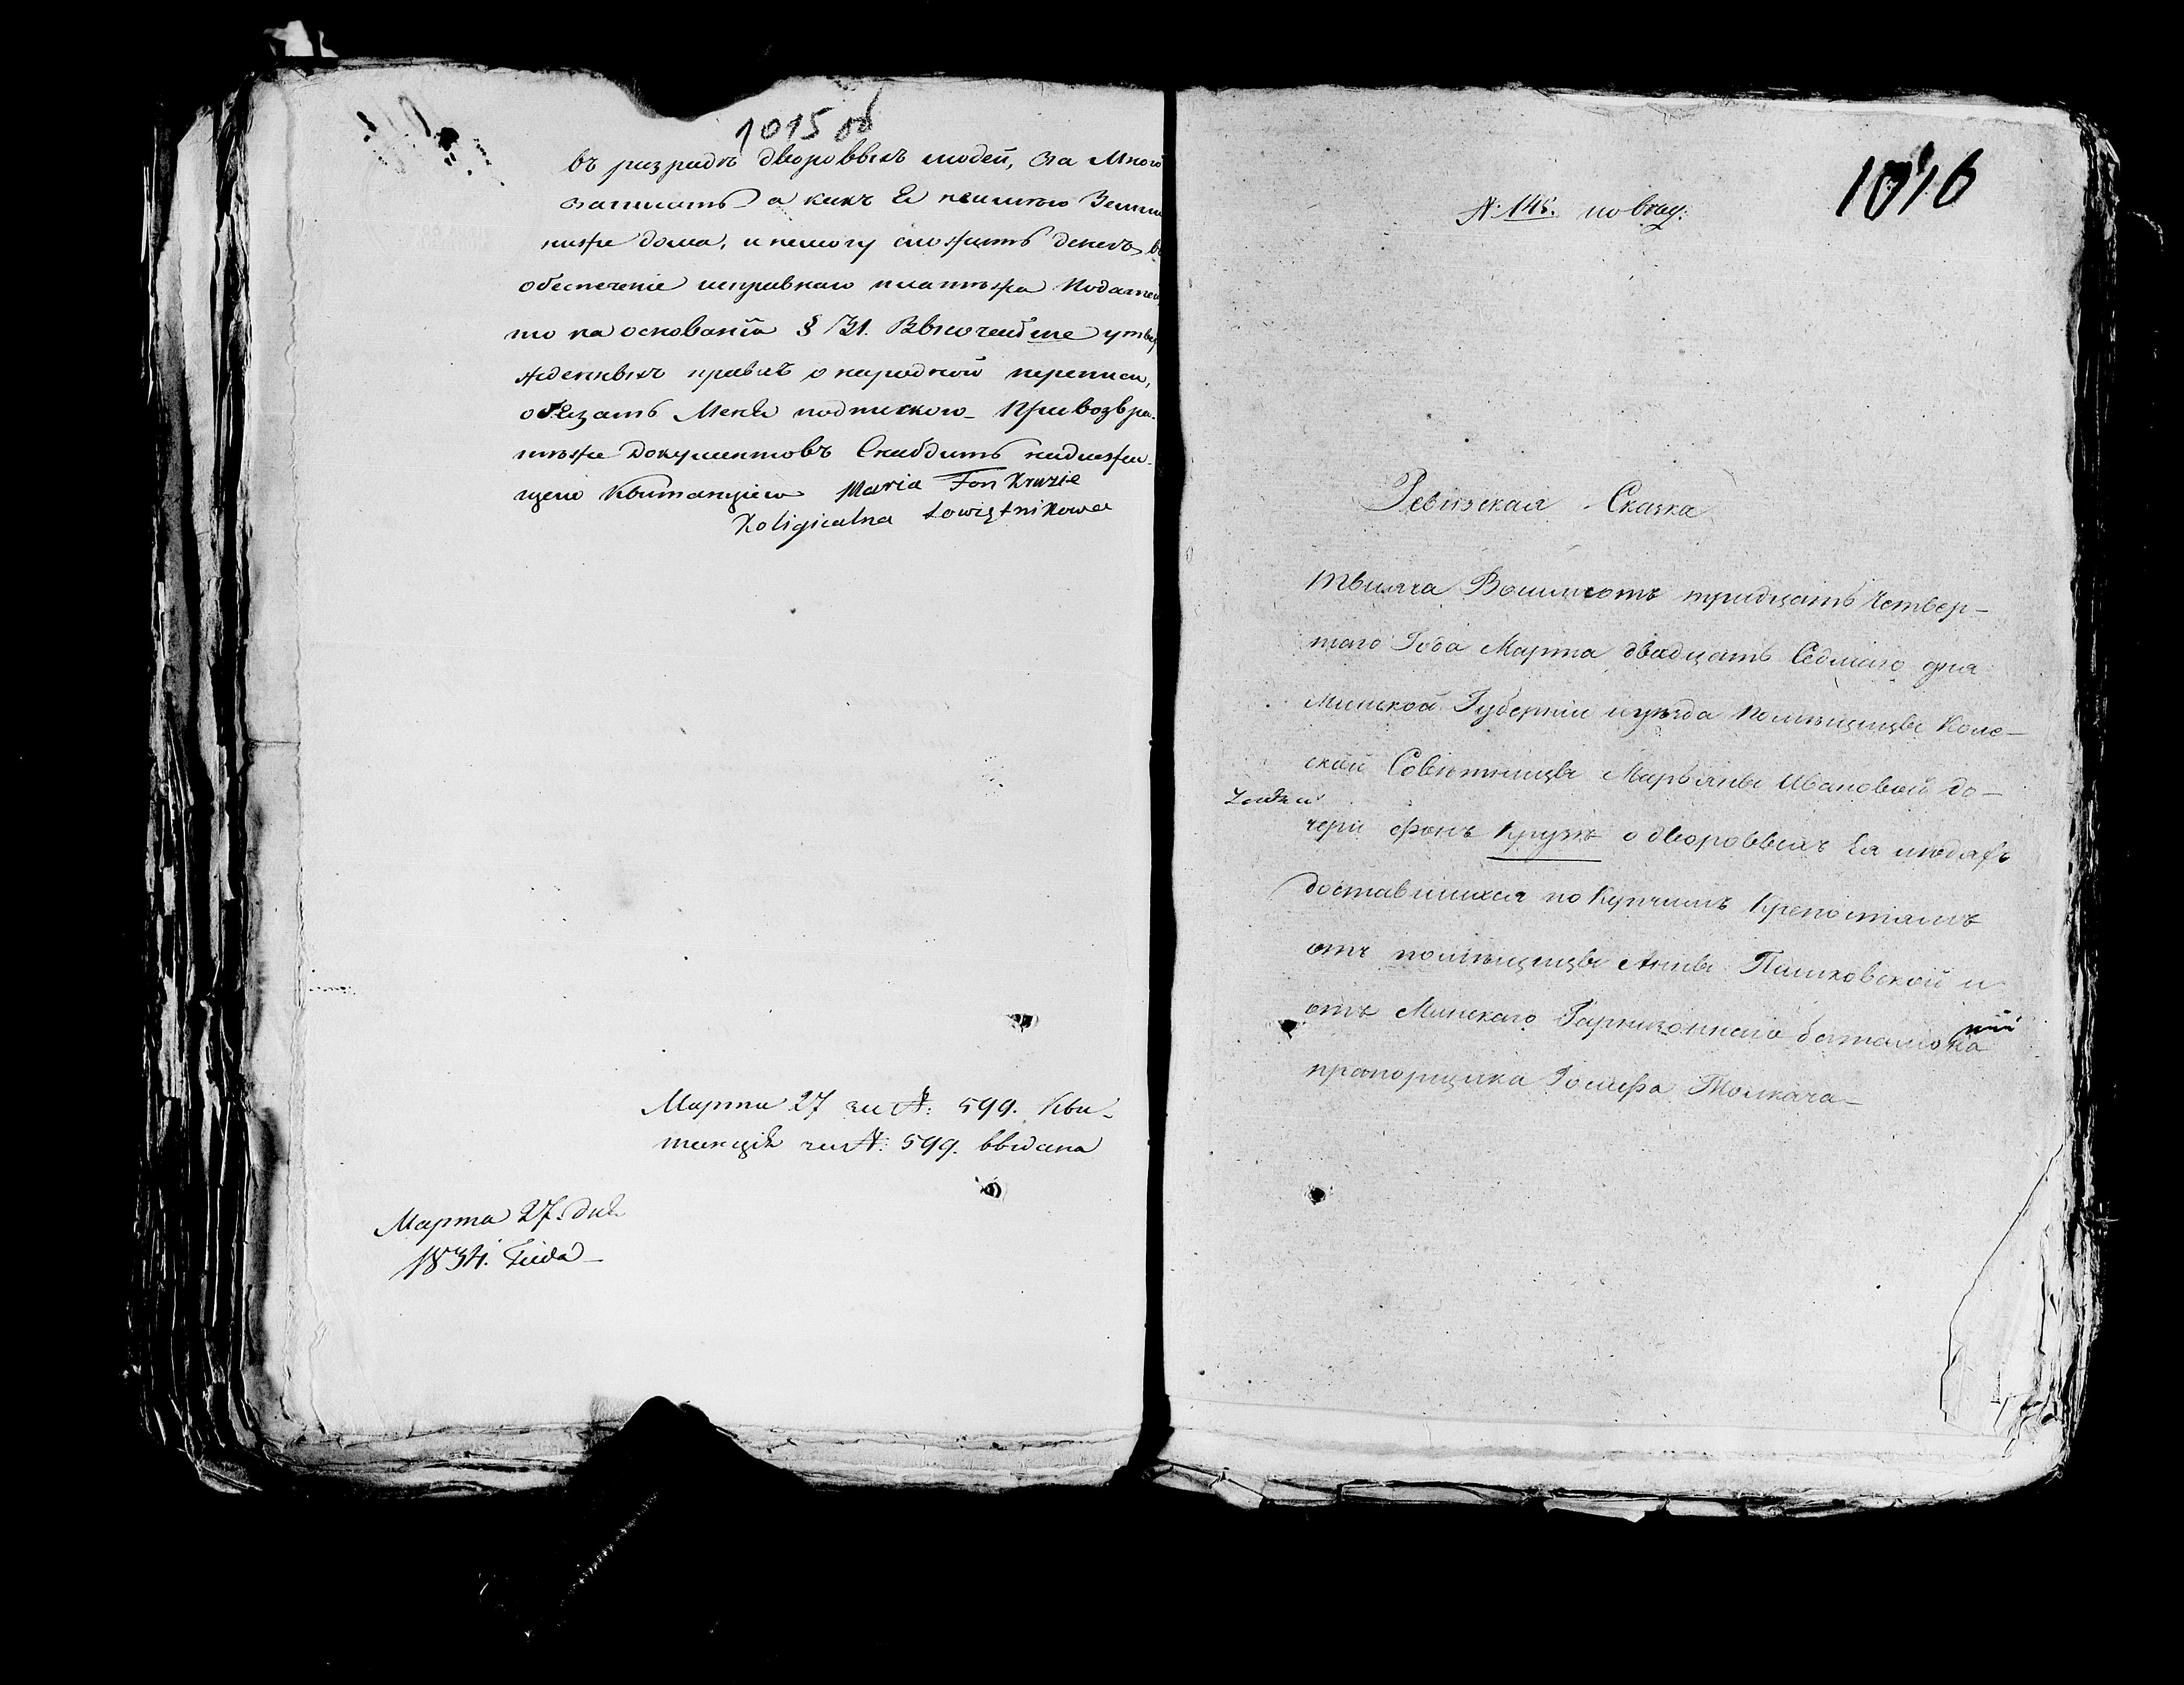 1015 об
въ разрядъ дворовыхъ людей, за Мною
записать а какъ Я неимѣю Земли
ниже дома, и немогу сложить денегъ въ
обеспеченіе исправнаго платежа Податей
то на основаніи § 71. Высочайше утвер
жденныхъ правилъ о народной переписи,
обязать Меня подпискою. При возвра-
тѣже документовъ Снабдить надлежа-
щею Квитанціею Maria Fon Kruzie
Koligialna Sowiętnikowa
Марта 27 за №: 599. Кви-
танція за №: 599. выдана
Марта 27. дня
1834. Года
1016
№ 145. по
Ревизская Сказка
Тысяча Восимсотъ тридцать Четвер-
таго Года Марта двадцать Седмаго дня
Минской Губерніи и уезда Помѣщицы Коле-
ской Совѣтницы Марьяны Ивановой до-
чери фонъ Крузъ о дворовыхъ Ея людяхъ
доставшихся по Купчимъ Крепостямъ
отъ помѣщицы Анны Пашковской и
отъ Минскаго Гарнизоннаго баталіона
прапорщика Іосифа Толкача